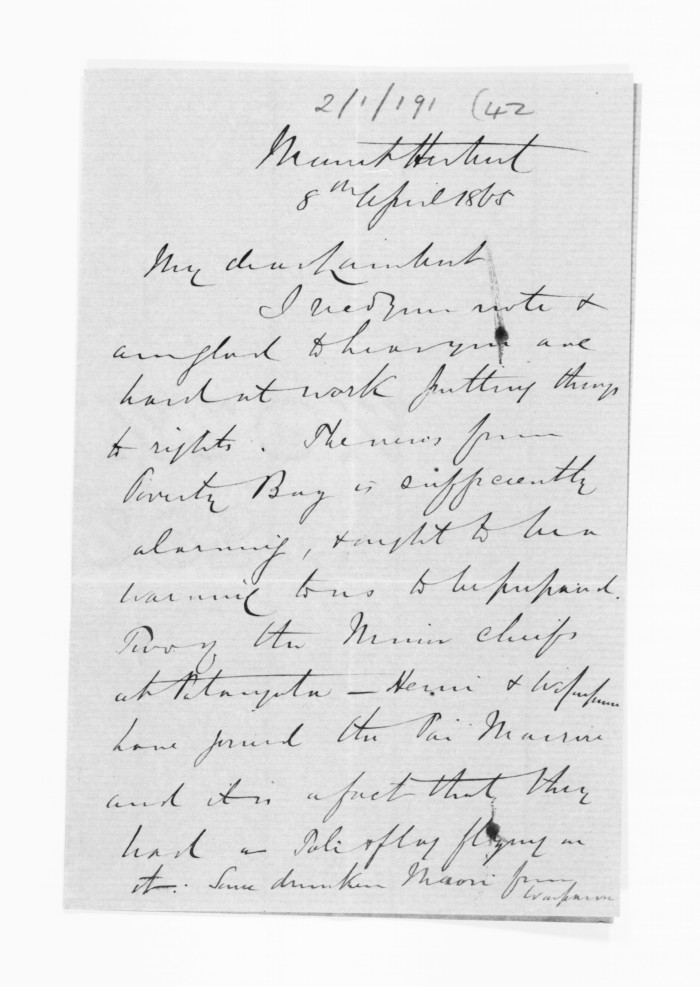 2/1/191 (42
Mount Herbert
8th April 1865
My dear Lambert
I recd your note &
am glad to hear you are
hard at work putting things
to rights. The news from
Poverty Bay is sufficiently
alarming, & ought to be a
warning to us to be prepared.
Two of the Minor chiefs
at Patangata — Henri &
have joined the Pai Marire
and it is a fact that they
had a Pole & flag flying on
it. Some drunken Maori from